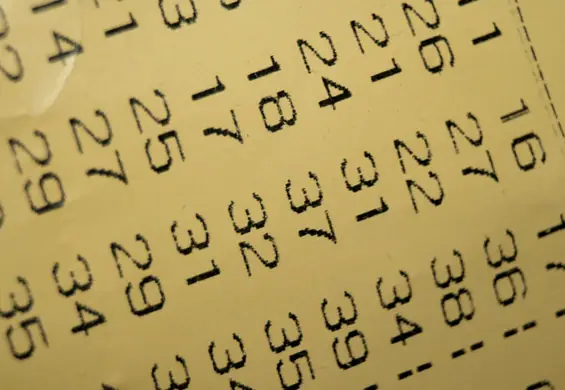 16
26 27 36
21 22 38
24 31 34
18 37 39
17 32 35
25 31
27 29
14 29 34
35